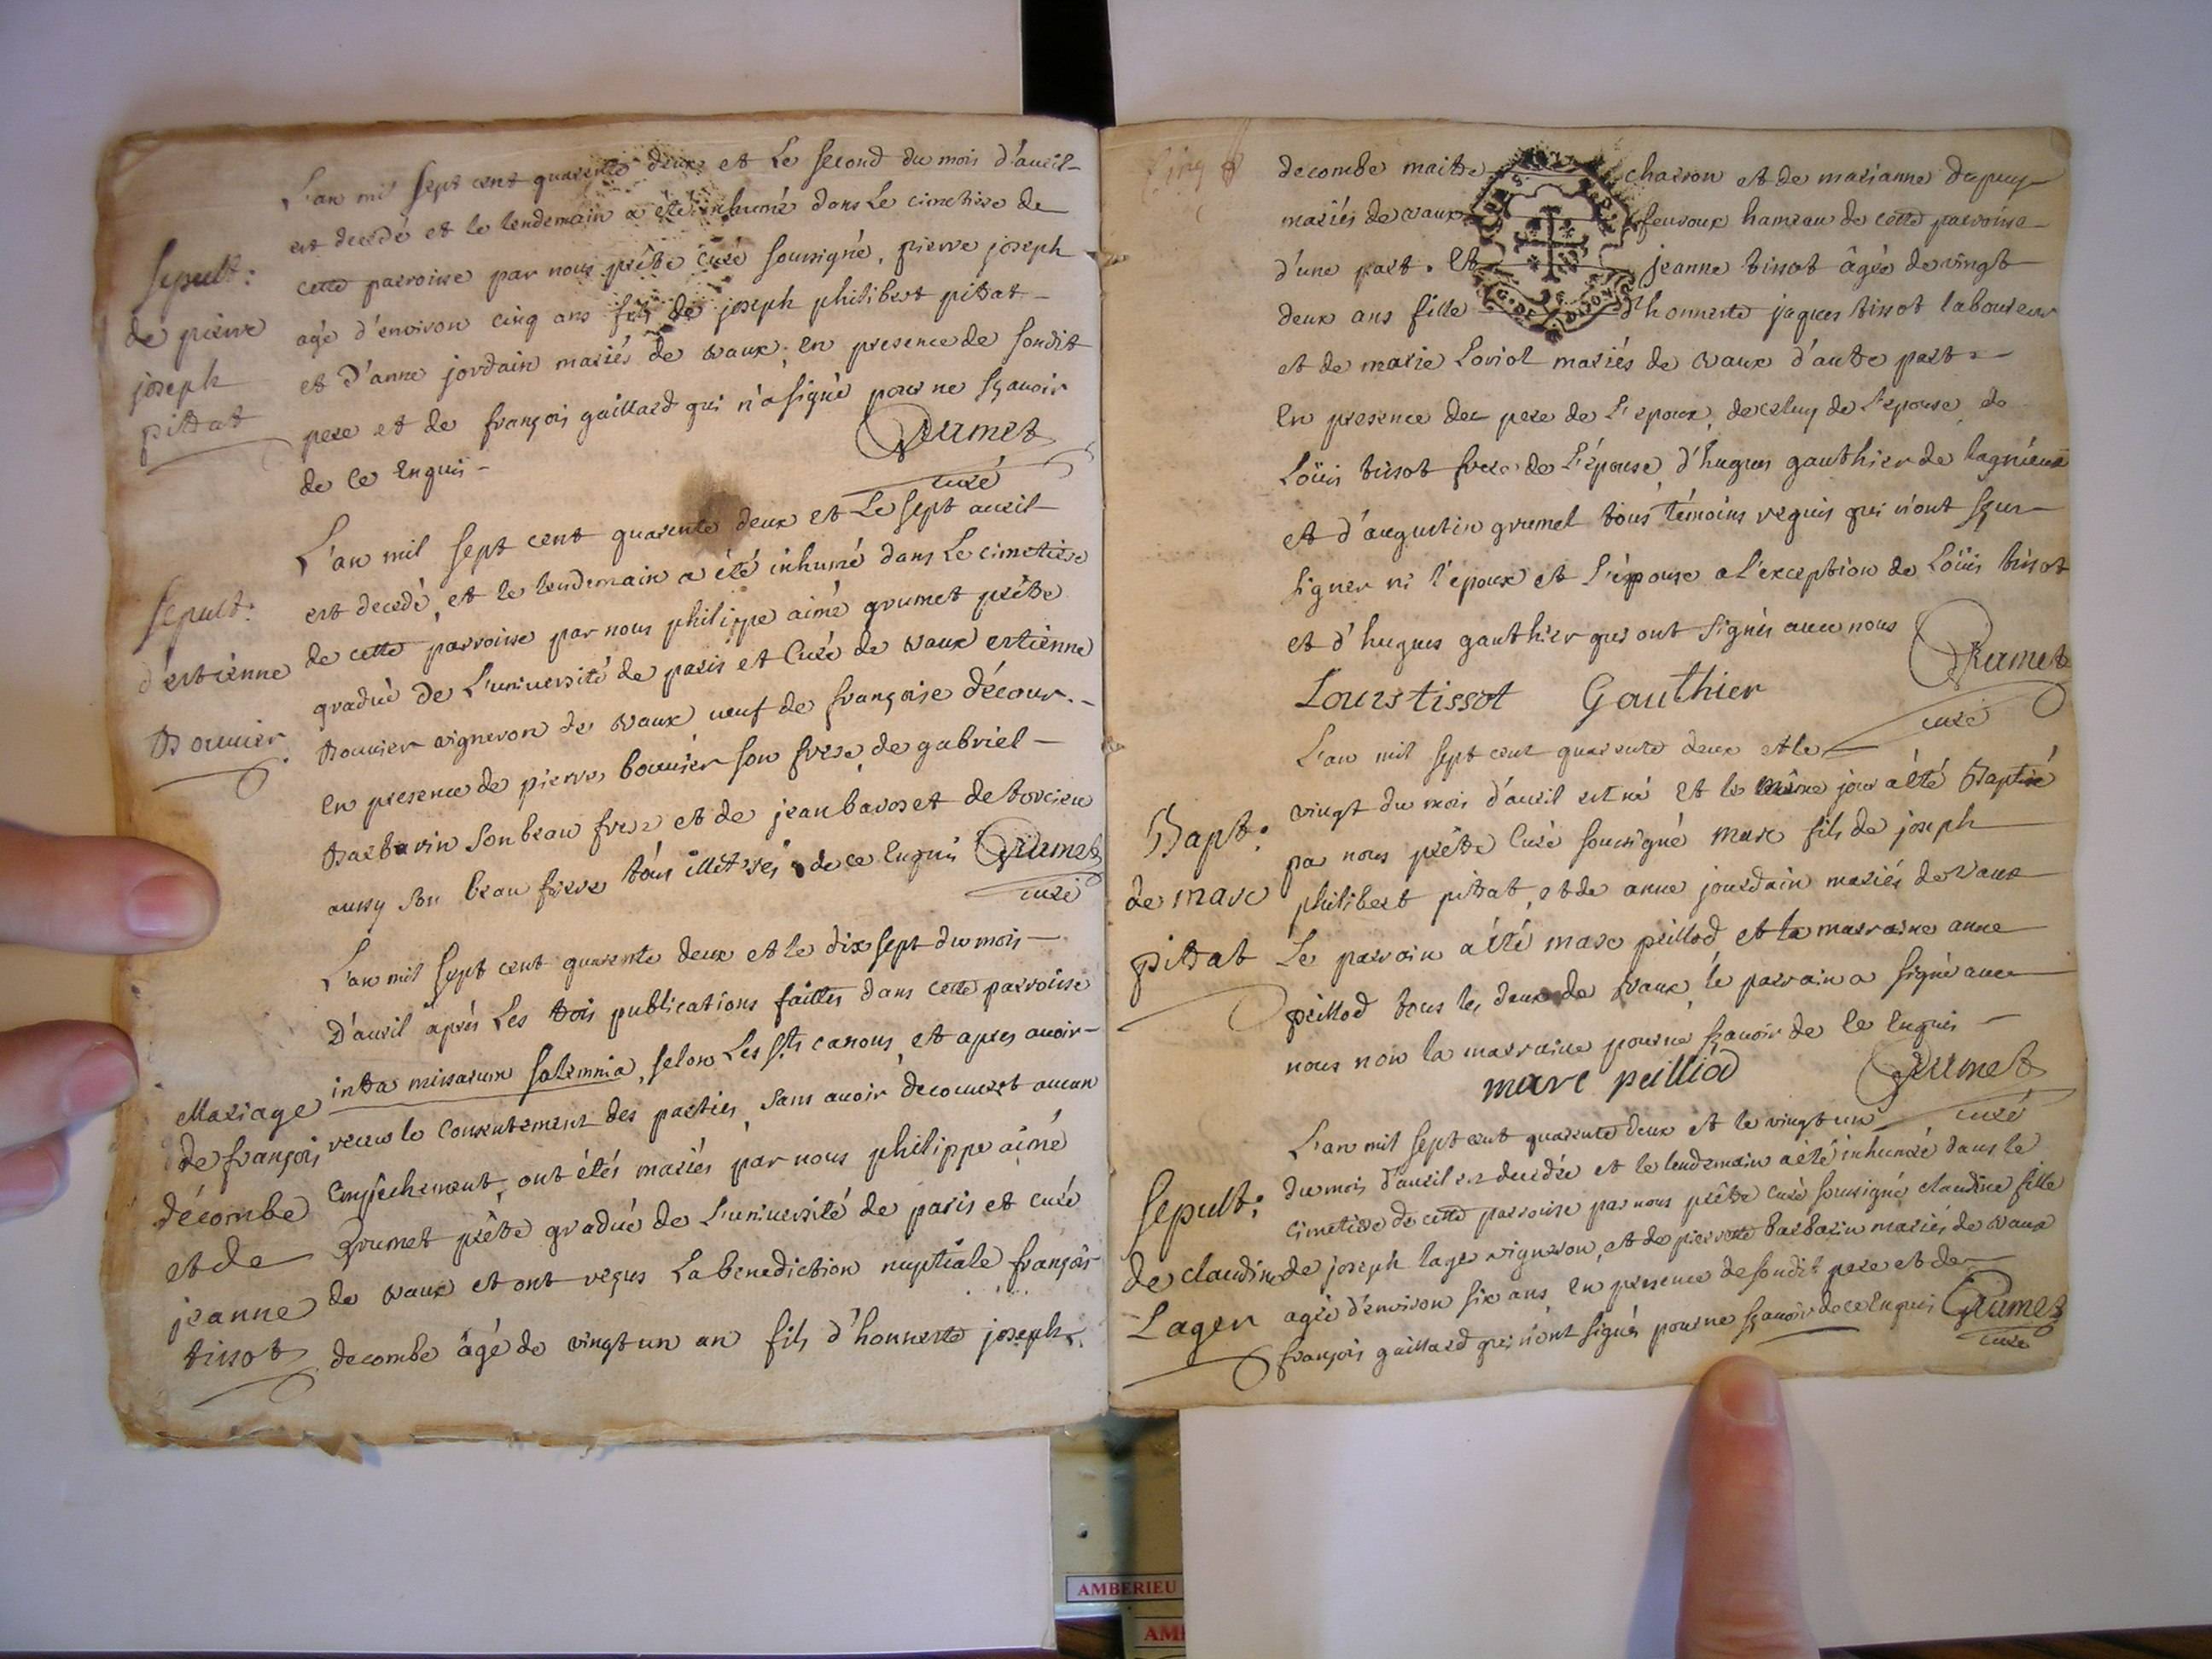 L'an mil sept cent quarente deux et Le second du mois d'auril
est decedé et le lendemain a été inhumé dans Le cimetiere de
cette parroisse par nous prêtre curé soussigné, pierre joseph
agé d'environ cinq ans fils de joseph philibert pittat
et d'anne jordain mariés de vaux; en presence de sondit
pere et de françois gaillard qui n'a signé pour ne sçauoir
de ce Enquis
Grumet
curé
Sepult:
de pierre
joseph
pittat
L'an mil sept cent quarente deux et Le sept auril
est decedé, et le lendemain a été inhumé dans Le cimetiere
de cette parroisse par nous philippe aimé grumet prêtre
gradué de L'uniuersité de paris et Curé de vaux estienne
bouuier vigneron de vaux ueuf de françoise décour
en presence de pierre bouuier son frere, de gabriel
barbarin son beau frere et de jean bavoset de torcieu
aussy son beau frere tous illetrés de ce Enquis Grumet
curé
Sepult:
d'estienne
bouuier
L'an mil sept cent quarente deux et le dix sept du mois
D'auril après Les trois publications faittes dans cette parroisse
intra missarum solemnia, selon Les Sts canons, et apres auoir
receu le Consentement des parties, sans auoir decouuert aucun
Empechement, ont étés mariés par nous philippe aimé
Grumet prêtre gradué de L'uniuersité de paris et curé
de vaux et ont reçus La benediction nuptiale françois
decombe âgé de vingt un an fils d'honneste joseph
Mariage
de françois
décombe
et de
jeanne
tissot
decombe maitre charron et de marianne dupuy
mariés de vaux feuroux hameau de cette parroisse
d'une part. Et jeanne tissot âgée de vingt
deux ans fille d'honneste jaques tissot laboureur
et de marie Loriol mariés de vaux d'autre part
En presence des pere de L'epoux, de celuy de L'epouse, de
Loüis tissot frere de L'épouse, d'hugues gauthier de lagnieux
et d'augustin grumet tous témoins requis qui n'ont sçeu
signer ni l'epoux et L'épouse a L'exception de Loüis tissot
et d'hugues gauthier qui ont signés auec nous
Grumet
curé
Louis tissot Gauthier
L'an mil sept cent quarente deux et le
vingt du mois d'auril est né Et le même jour a été Baptisé
par nous prêtre Curé soussigné marc fils de joseph
philibert pittat, et de anne jourdain mariés de vaux
Le parrain a été marc peillod et la marraine anne
peillod tous les deux de vaux, le parrain a signé auec
nous non la marraine pour ne sçauoir de ce Enquis
marc peilliod Grumet
curé
Bapt:
de marc
pittat
L'an mil sept cent quarente deux et le vingt un
du mois d'auril est decedée et le lendemain a été inhumée dans le
cimetiere de cette parroisse par nous prêtre curé soussigné claudine fille
de joseph lager vigneron, et de pierrette barbarin mariés de vaux
agée d'environ six ans en presence de sondit pere et de
françois gaillard qui n'ont signés pour ne sçauoir de ce Enquis Grumet
curé
Sepult:
de claudine
Lager
AMBERIEU